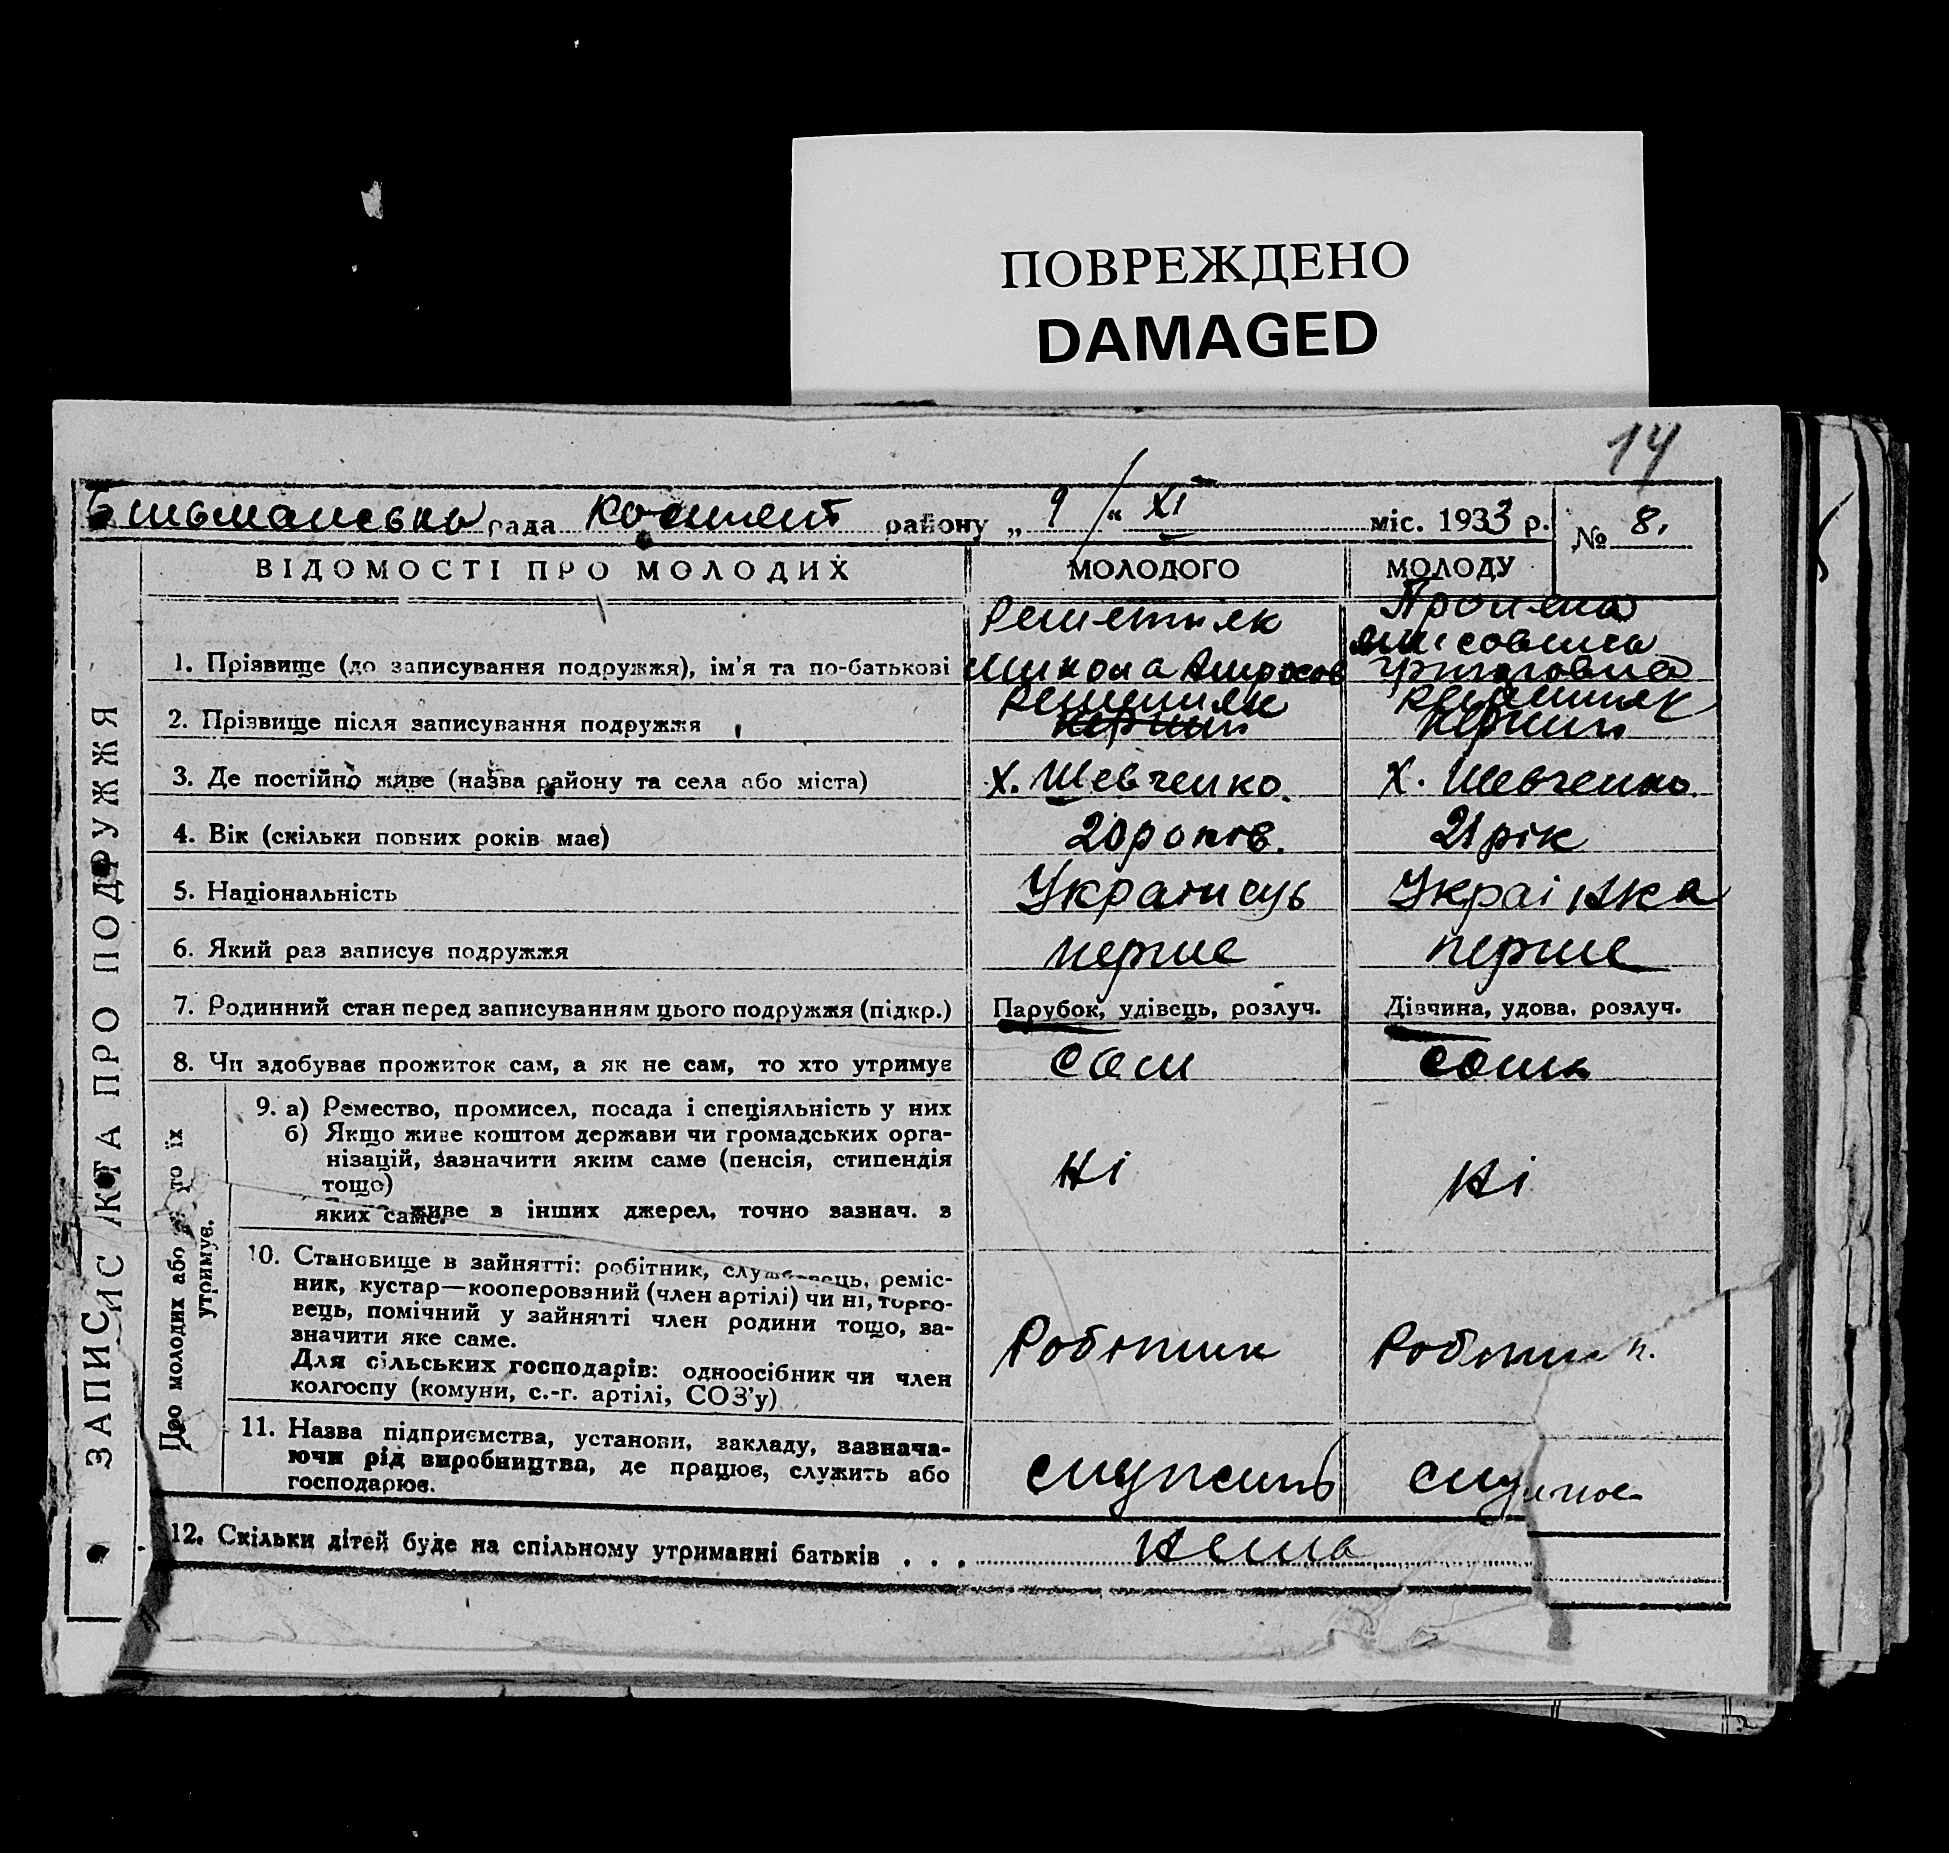 ПОВРЕЖДЕНО
DAMAGED
14
рада района „ 9 “ XI міс. 1933 р.
№ 8.
ЗАПИС АКТА ПРО ПОДРУЖЖЯ
ВІДОМОСТІ ПРО МОЛОДИХ МОЛОДОГО МОЛОДУ
1. Прізвище (до записування подружжя), ім’я та по-батькові Решетняк Микола
2. Прізвище після записування подружжя Решетняк Решетняк
3. Де постійно живе (назва району та села або міста) Х. Шевченко. Х. Шевченко.
4. Вік (скільки повних років має) 20 років. 21 рік
5. Національність Українець Українка
6. Який раз записує подружжя перше перше
7. Родинний стан перед записуванням цього подружжя (підкр.) Парубок, удівець, розлуч. Дівчина, удова, розлуч.
8. Чи здобуває прожиток сам, а як не сам, то хто утримує сам сама
Про молодих або то їх
утримує.
9. а) Ремество, промисел, посада і спеціяльність у них
б) Якщо живе коштом держави чи громадських орга-
нізацій, зазначити яким саме (пенсія, стипендія
тощо)
живе в інших джерел, точно зазнач. з
яких саме.
Ні Ні
10. Становище в зайнятті: робітник, службовець, реміс-
ник, кустар—кооперований (член артілі) чи ні, торго-
вець, помічний у зайнятті член родини тощо, за-
значити яке саме.
Для сільських господарів: одноосібник чи член
колгоспу (комуни, с.-г. артілі, СОЗ’у)
Робітник
11. Назва підприємства, установи, закладу, зазнача-
ючи рід виробництва, де працює, служить або
господарює.
служить
12. Скільки дітей буде на спільному утриманні батьків . . . нема